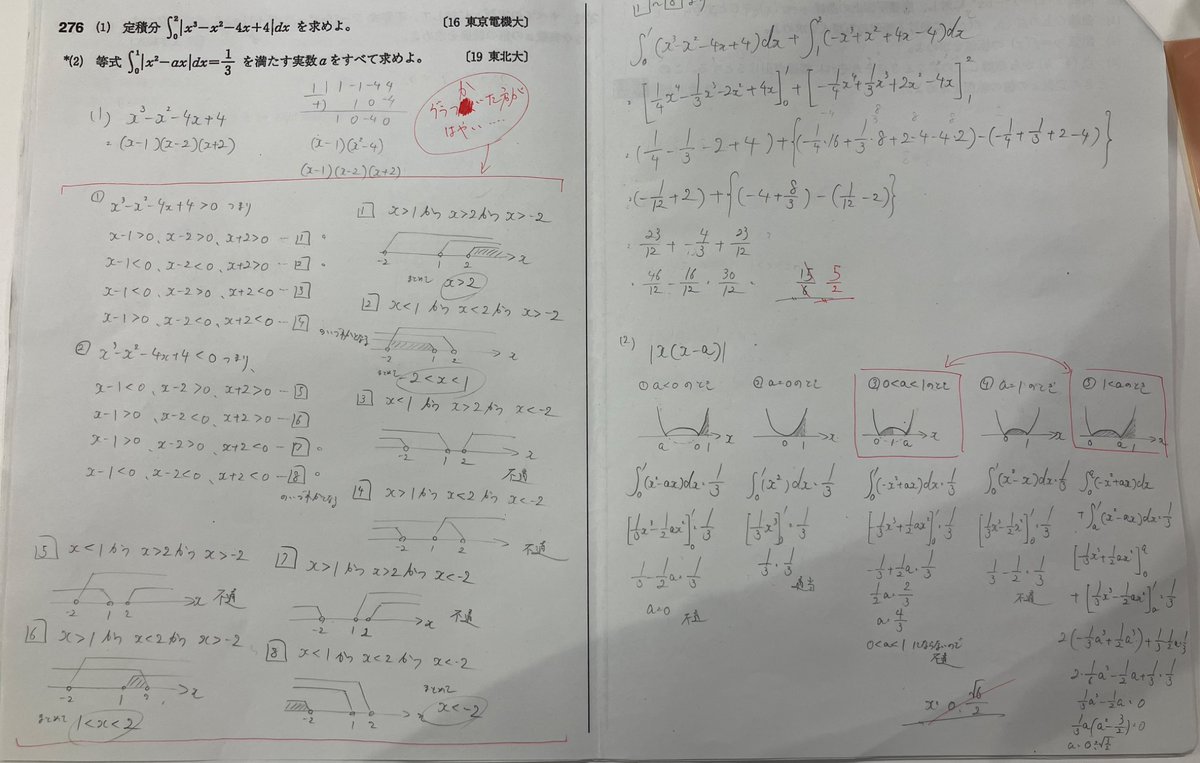 276 (1) 定積分 ∫₀²|x³−x²−4x+4|dx を求めよ。 〔16 東京電機大〕
*(2) 等式 ∫₀¹|x²−ax|dx=1/3 を満たす実数aをすべて求めよ。 〔19 東北大〕
(1) x³−x²−4x+4
= (x−1)(x−2)(x+2)
1 | 1 −1 −4 4
+) 1 0 −4
1 0 −4 0
(x−1)(x²−4)
(x−1)(x−2)(x+2)
はやい……
① x³−x²−4x+4>0 つまり
x−1>0、x−2>0、x+2>0 …1
x−1<0、x−2<0、x+2>0 …2
x−1<0、x−2>0、x+2<0 …3
x−1>0、x−2<0、x+2<0 …4
のいずれかとなる
② x³−x²−4x+4<0 つまり、
x−1<0、x−2>0、x+2>0 …5
x−1>0、x−2<0、x+2>0 …6
x−1>0、x−2>0、x+2<0 …7
x−1<0、x−2<0、x+2<0 …8
のいずれかとなる
1 x>1かつ x>2かつ x>−2
−2 1 2 x
まとめて x>2
2 x<1かつ x<2かつ x>−2
−2 1 2 x
まとめて −2<x<1
3 x<1かつ x>2かつ x<−2
−2 1 2 x
不適
4 x>1かつ x<2かつ x<−2
−2 1 2 x
不適
5 x<1かつ x>2かつ x>−2
−2 1 2 x 不適
6 x>1かつ x<2かつ x>−2
−2 1 2 x
まとめて 1<x<2
7 x>1かつ x>2かつ x<−2
−2 1 2 x 不適
8 x<1かつ x<2かつ x<−2
−2 1 2 x
まとめて x<−2
∫₀¹(x³−x²−4x+4)dx + ∫₁²(−x³+x²+4x−4)dx
= [1/4x⁴−1/3x³−2x²+4x]₀¹ + [−1/4x⁴+1/3x³+2x²−4x]₁²
= (1/4−1/3−2+4) + {(−1/4·16+1/3·8+2·4−4·2)−(−1/4+1/3+2−4)}
= (−1/12+2) + {(−4+8/3)−(1/12−2)}
= 23/12 + −4/3 + 23/12
= 46/12 − 16/12 = 30/12 = 15/6 5/2
(2) |x(x−a)|
① a<0のとき
a 0 1 x
∫₀¹(x²−ax)dx=1/3
[1/3x³−1/2ax²]₀¹=1/3
1/3−1/2a=1/3
a=0 不適
② a=0のとき
0 1 x
∫₀¹(x²)dx=1/3
[1/3x³]₀¹=1/3
1/3=1/3
適当
③ 0<a<1のとき
0 1 a x
∫₀¹(−x²+ax)dx=1/3
[−1/3x³+1/2ax²]₀¹=1/3
−1/3+1/2a=1/3
1/2a=2/3
a=4/3
0<a<1にならないので
不適
④ a=1のとき
0 1 x
∫₀¹(x²−x)dx=1/3
[1/3x³−1/2x²]₀¹=1/3
1/3−1/2=1/3
不適
⑤ 1<aのとき
0 a 1 x
∫₀ᵃ(−x²+ax)dx
+∫ₐ¹(x²−ax)dx=1/3
[−1/3x³+1/2ax²]₀ᵃ
+[1/3x³−1/2ax²]ₐ¹=1/3
2(−1/3a³+1/2a³)+1/3−1/2a=1/3
2·1/6a³−1/2a+1/3=1/3
1/3a³−1/2a=0
1/3a(a²−3/2)=0
a=0,±√3/2
x=0,√6/2